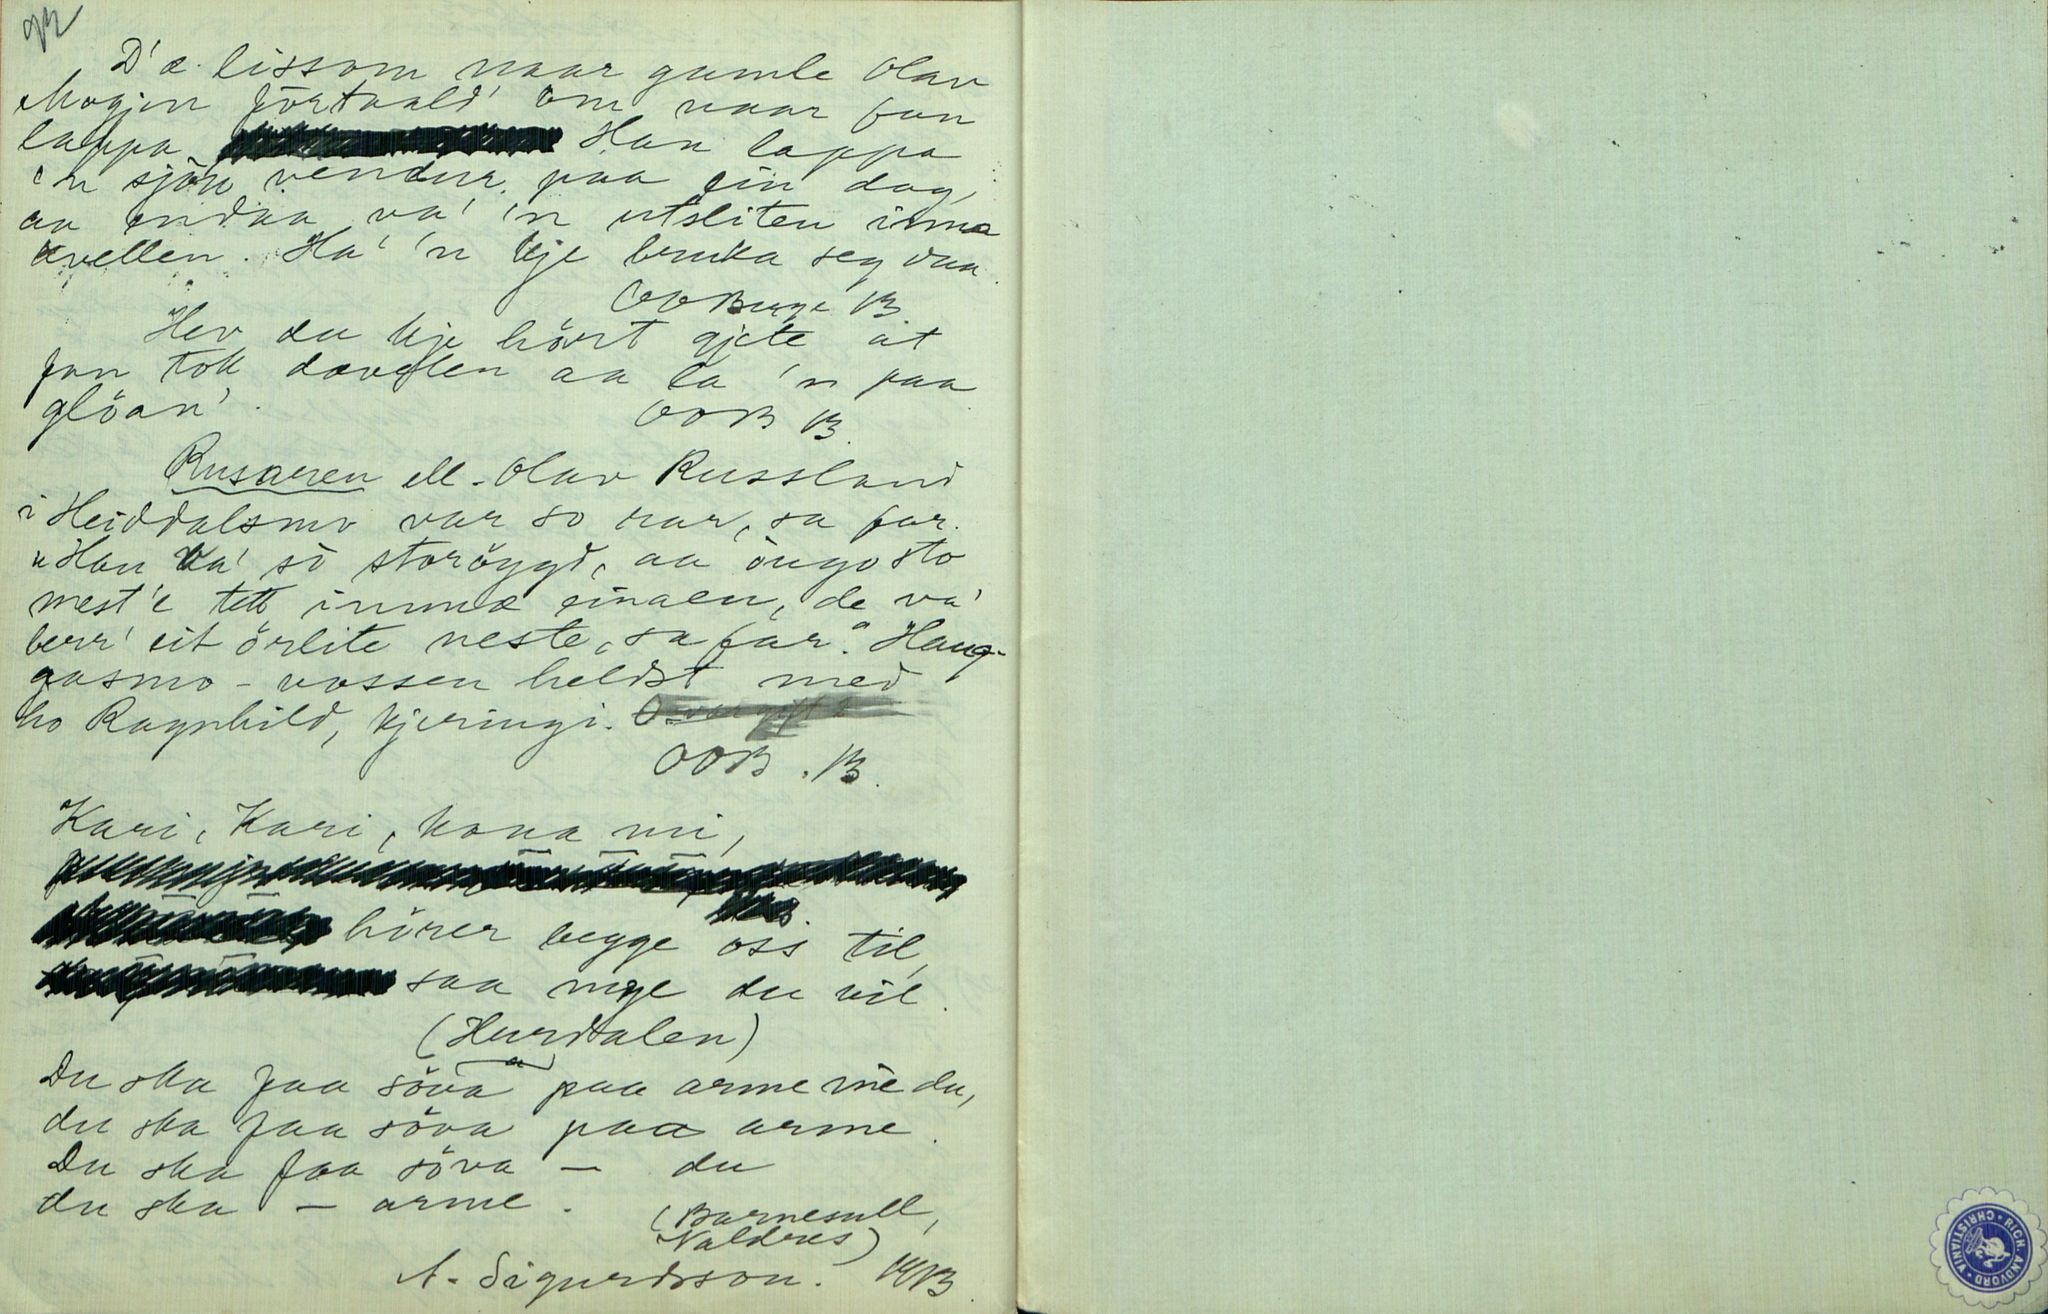 92
D'æ lissom naar gamle Olav
Mogjen förtaald' om naar fan
lappa Han lappa
'n sjöu vendur paa ein dag,
aa endaa va' 'n utsliten inna
kvellen. Ha' 'n kje bruka seg daa
OOBuge B
Hev du kje hört gjete at
fan tok dævelen aa la 'n paa
glöan'.
OOB B.
Rusaren ell. Olav Russland
i Heiddalsmo var so rar, sa far.
"Han va' so storöygd, aa öugo sto
mest'e tett innmæ einaen, de va'
berr' eit örlite neste, sa far." Haug-
gasmo - vossen heldst med
ho Ragnhild, kjeringi.
OOB. B.
Kari, Kari, kona mi,
hörer begge oss til,
saa mye du vil.
(Hurdalen)
Du ska faa söva paa arme me du,
du ska faa söva paa arme.
Du ska faa söva — du
du ska — arme.
(Barnesull,
Valdres)
A. Sigurdsson. 1913
RICH. ANDVORD • CHRISTIANIA •